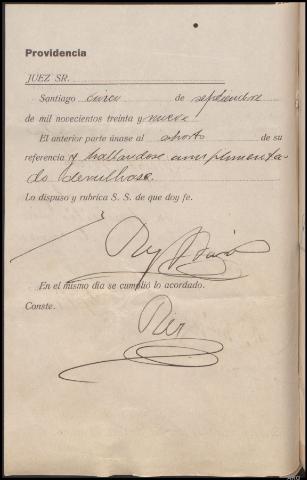 Providencia
JUEZ SR.
Santiago cinco de septiembre
de mil novecientos treinta y nueve
El anterior parte únase al exhorto de su
referencia y hallandose cumplimenta-
do devuelvase.
Lo dispuso y rubrica S. S. de que doy fe.
En el mismo día se cumplió lo acordado.
Conste.